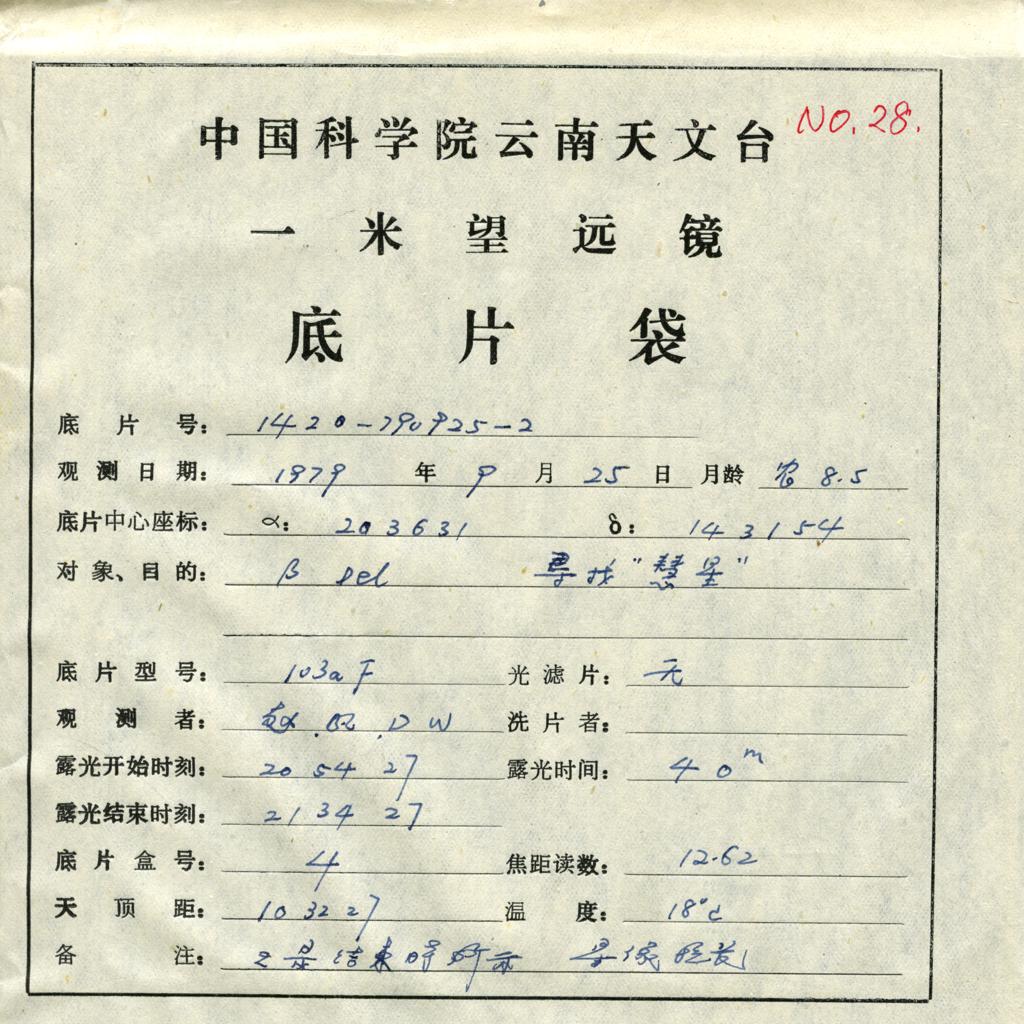 中国科学院云南天文台 NO.28.
一米望远镜
底片袋
底片号: 1420-790925-2
观测日期: 1979 年 9 月 25 日 月龄 农 8.5
底片中心座标: α: 203631 δ: 143154
对象、目的: β Del 寻找"慧星"
底片型号: 103aF 光滤片: 无
观测者: 赵 . . D W 洗片者:
露光开始时刻: 20 54 27 露光时间: 40m
露光结束时刻: 21 34 27
底片盒号: 4 焦距读数: 12.62
天顶距: 10 32 27 温度: 18°c
备注: Z是结束时所示 星像